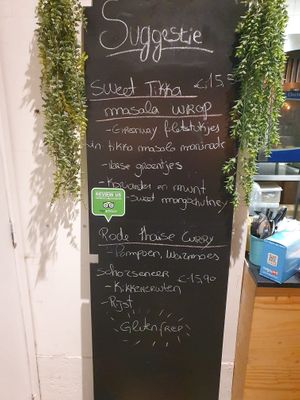 Suggestie
Sweet Tikka €15,5
masala wrap
- Giverway filetstukjes
in tikka masala marinade
- Verse groentjes
- Koriander en munt
- Sweet mangochutney
REVIEW US
Rode Thaise Curry
- Pompoen, Warmoes
schorseneer €15,90
- Kikkererwten
- Rijst
Gluten free